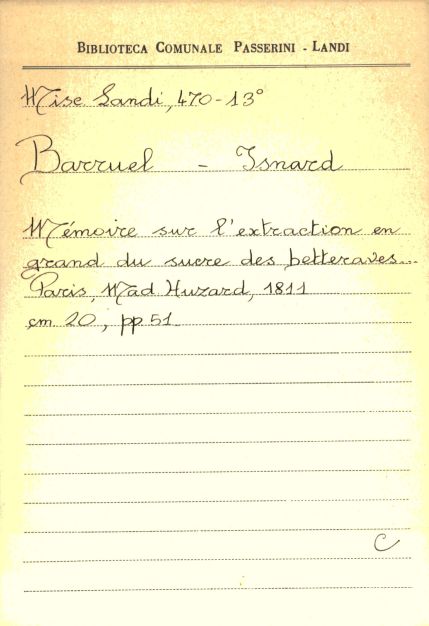 BIBLIOTECA COMUNALE PASSERINI - LANDI
Mise Landi, 470-13°
Barruel - Isnard
Mémoire sur l'extraction en
grand du sucre des betteraves...
Paris, Mad Huzard, 1811
cm 20, pp 51
C